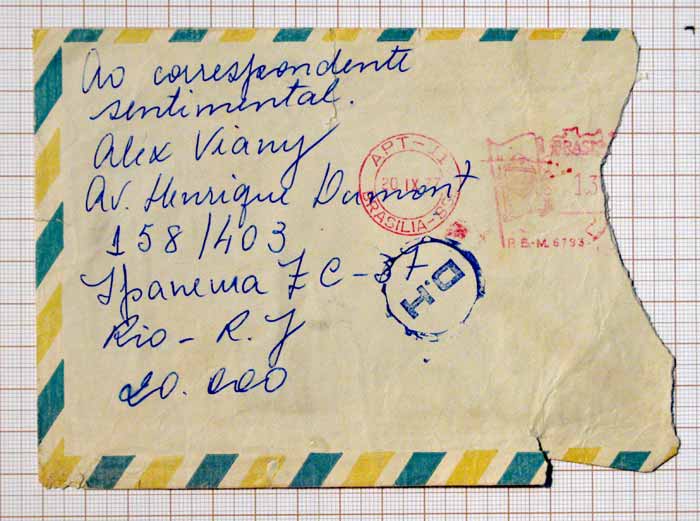 Ao correspondente
sentimental.
Alex Viany
Av. Henrique Dumont
158/403
Ipanema ZC-37
Rio - R.J
20.000
APT-11
20 IX
BRASILIA
BRASIL
13
P.B.-M. 6793
D.H